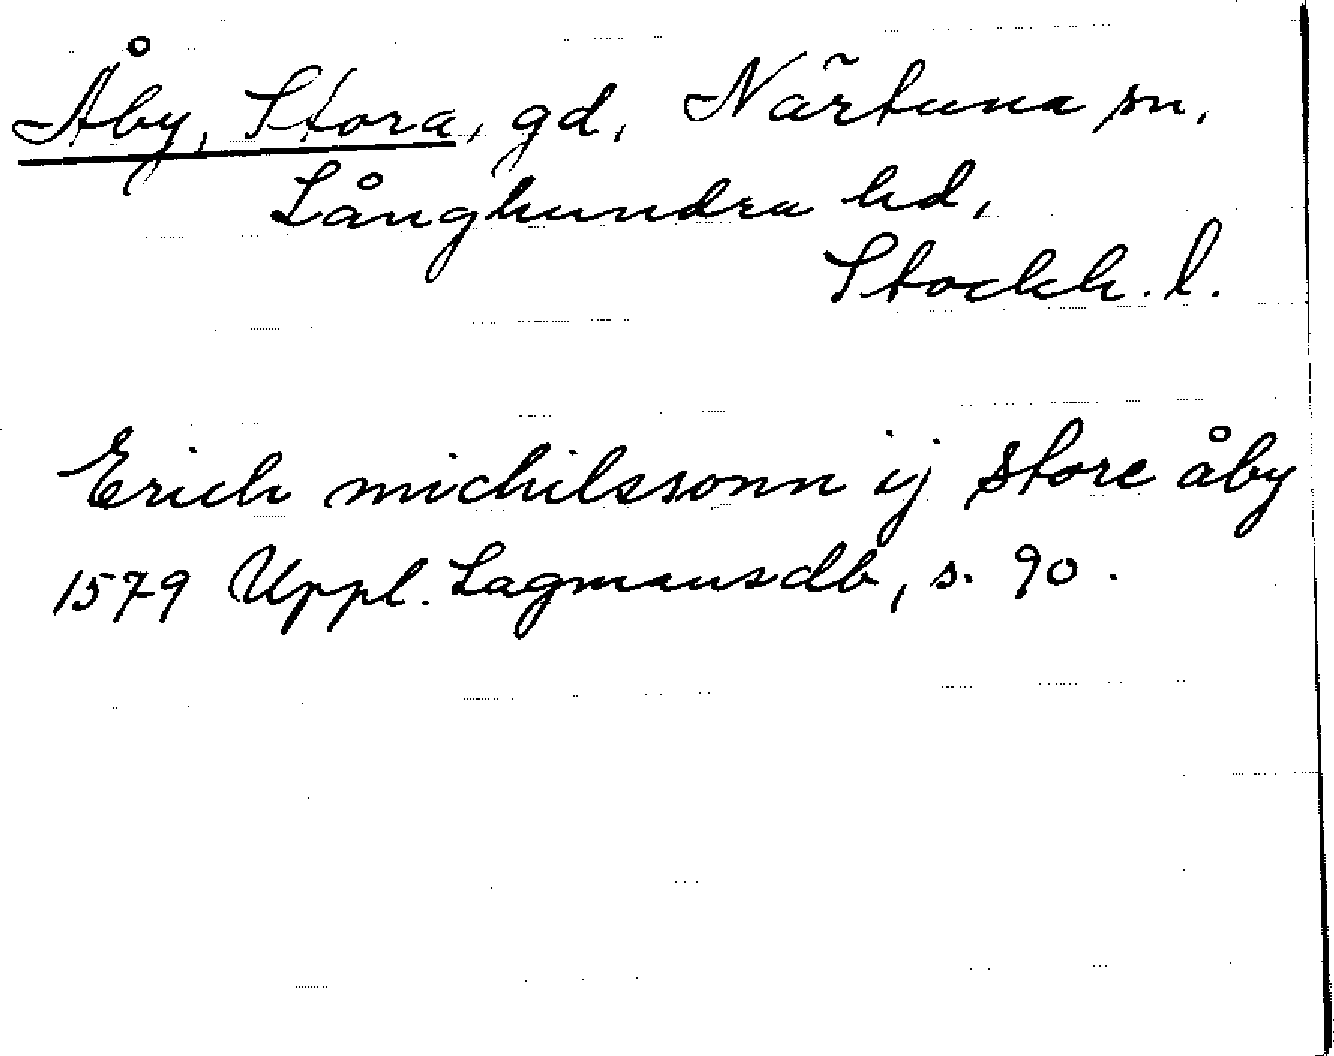 Åby, Stora, gd, Närtuna sn,
Långhundra hd,
Stockh. l.
Erich michilssonn ij store åby
1579 Uppl. Lagmansdb, s. 90.